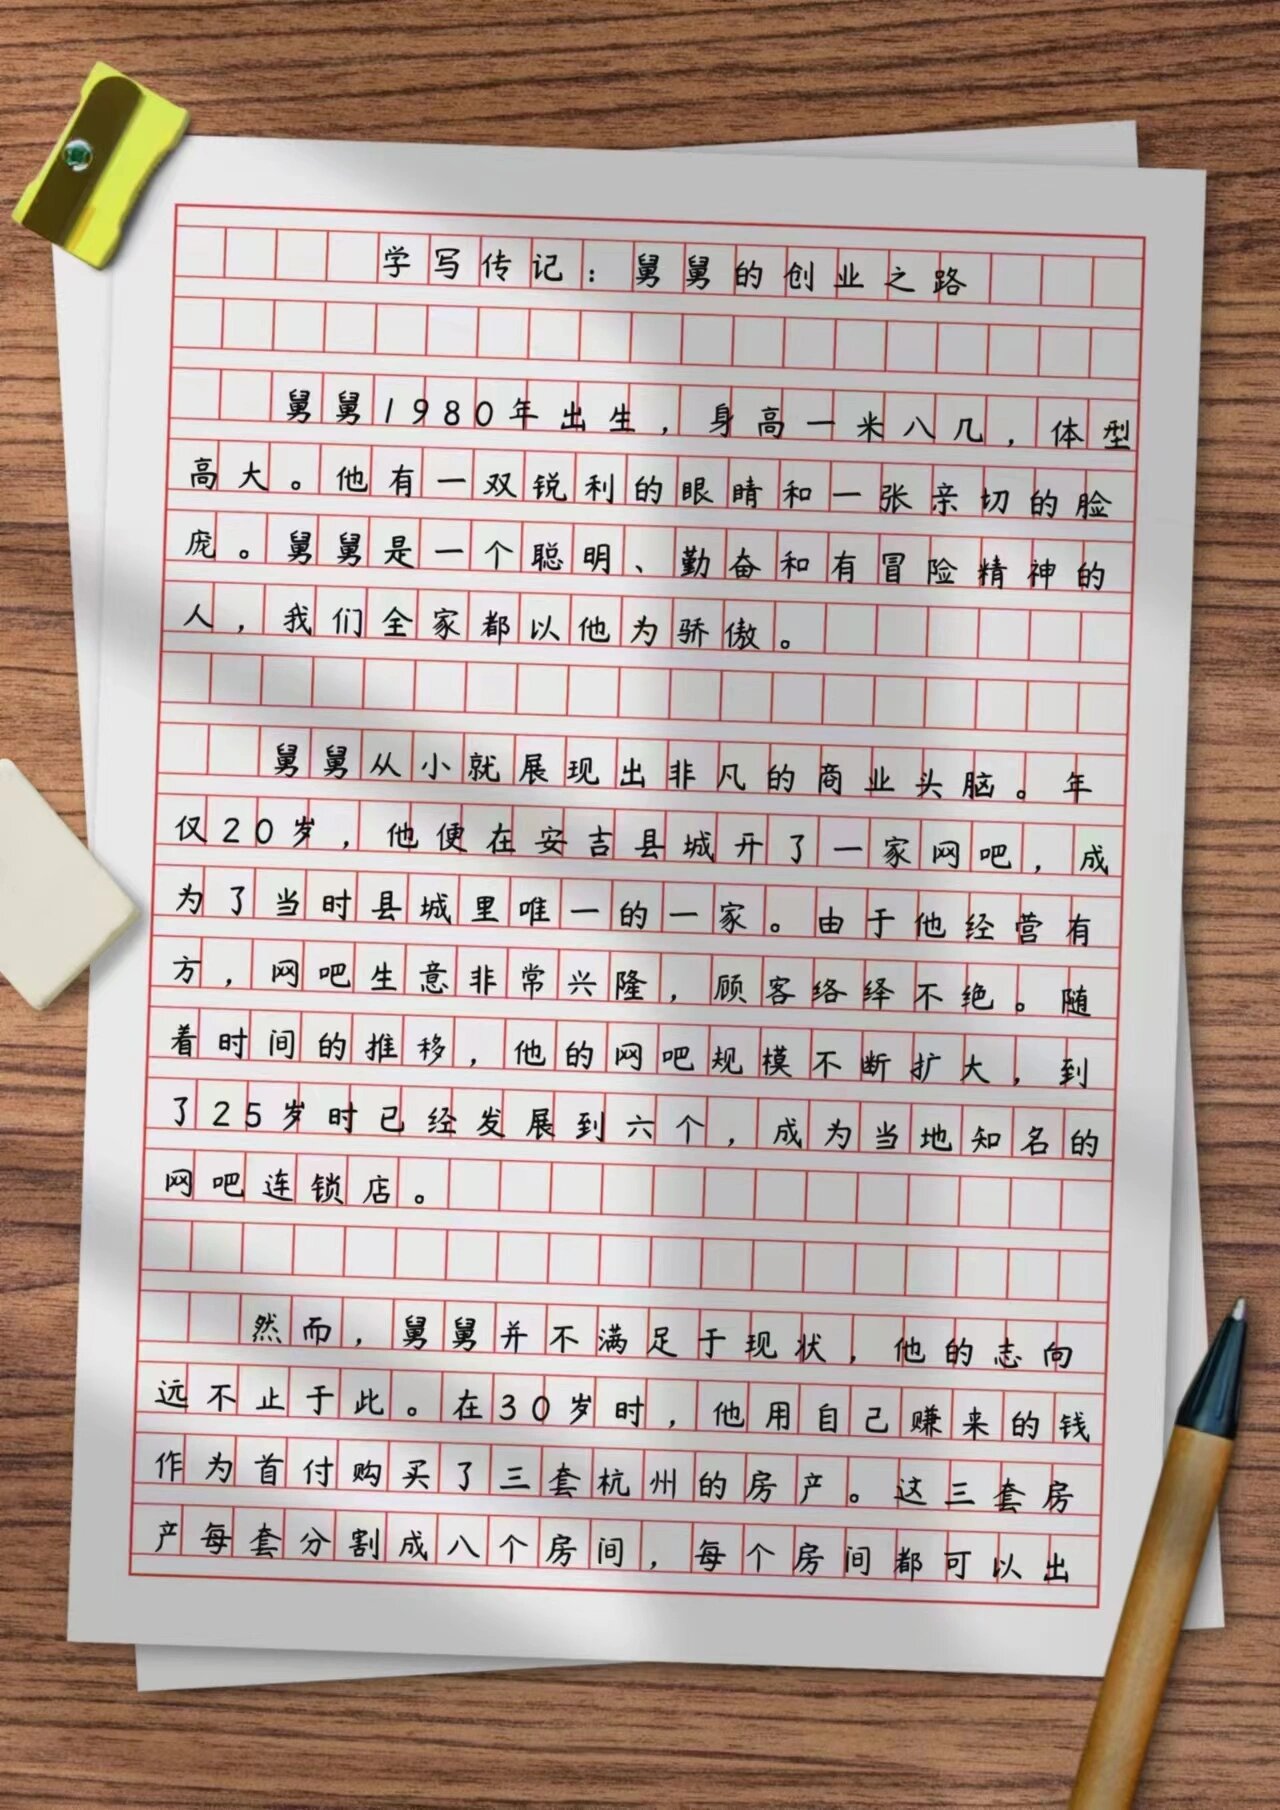 学写传记：舅舅的创业之路
舅舅1980年出生，身高一米八几，体型
高大。他有一双锐利的眼睛和一张亲切的脸
庞。舅舅是一个聪明、勤奋和有冒险精神的
人，我们全家都以他为骄傲。
舅舅从小就展现出非凡的商业头脑。年
仅20岁，他便在安吉县城开了一家网吧，成
为了当时县城里唯一的一家。由于他经营有
方，网吧生意非常兴隆，顾客络绎不绝。随
着时间的推移，他的网吧规模不断扩大，到
了25岁时已经发展到六个，成为当地知名的
网吧连锁店。
然而，舅舅并不满足于现状，他的志向
远不止于此。在30岁时，他用自己赚来的钱
作为首付购买了三套杭州的房产。这三套房
产每套分割成八个房间，每个房间都可以出